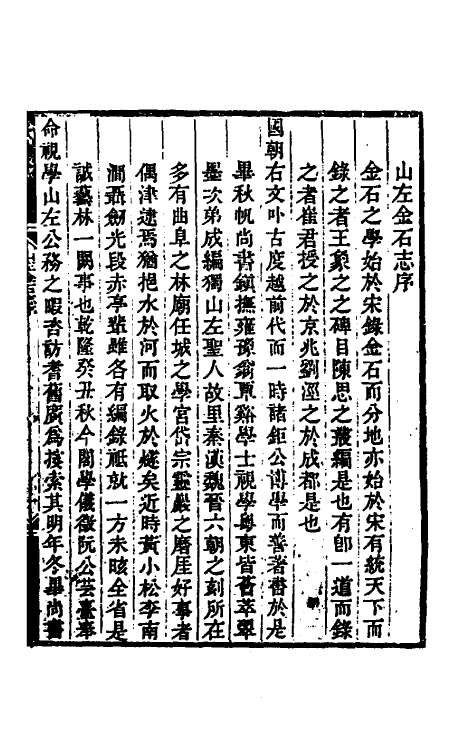 山左金石志序
金石之學始於宋錄金石而分地亦始於宋有統天下而
錄之者王象之之碑目陳思之叢編是也有卽一道而錄
之者崔君授之於京兆劉涇之於成都是也
國朝右文卟古度越前代而一時諸鉅公博學而善著書於是
畢秋帆尚書鎭撫雍豫翁覃谿學士視學粤東皆薈萃翠
墨次弟成編獨山左聖人故里秦漢魏晉六朝之刻所在
多有曲阜之林廟任城之學宮岱宗靈巖之磨厓好事者
偶津逮焉猶挹水於河而取火於燧矣近時黃小松李南
澗聶劒光段赤亭輩雖各有編錄祇就一方未晐全省是
誠藝林一闕事也乾隆癸丑秋今閣學儀徵阮公芸臺奉
命視學山左公務之暇咨訪耆舊廣爲搜索其明年冬畢尚書